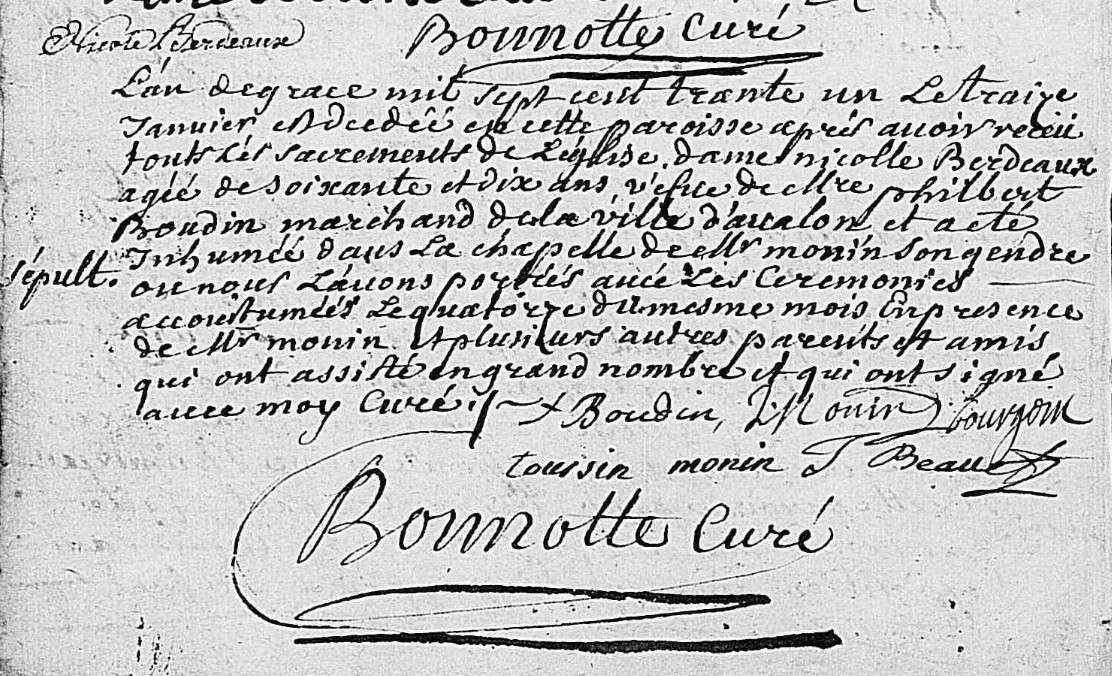 Nicole Berdeaux
Bonnotte Curé
L'an de grace mil sept cent trante un Le traize
Janvier, est decedéé en cette paroisse aprés avoir reçeu
touts Les sacrements de L'église, dame nicolle Berdeaux
agéé de soixante et dix ans, vefue de Mre philbert
Boudin marchand de la ville d'avalon et a ete
Inhuméé dans La chapelle de Mr monin son gendre
sépult.
ou nous L'avons portéé avec Les Ceremonies
accoustuméés Le quatorze du mesme mois En presence
de Mr monin et plusieurs autres parents et amis
qui ont assisté en grand nombre et qui ont signé
avec moy Curé Boudin, Monin bourgoin
toussin monin J Beau
Bonnotte Curé